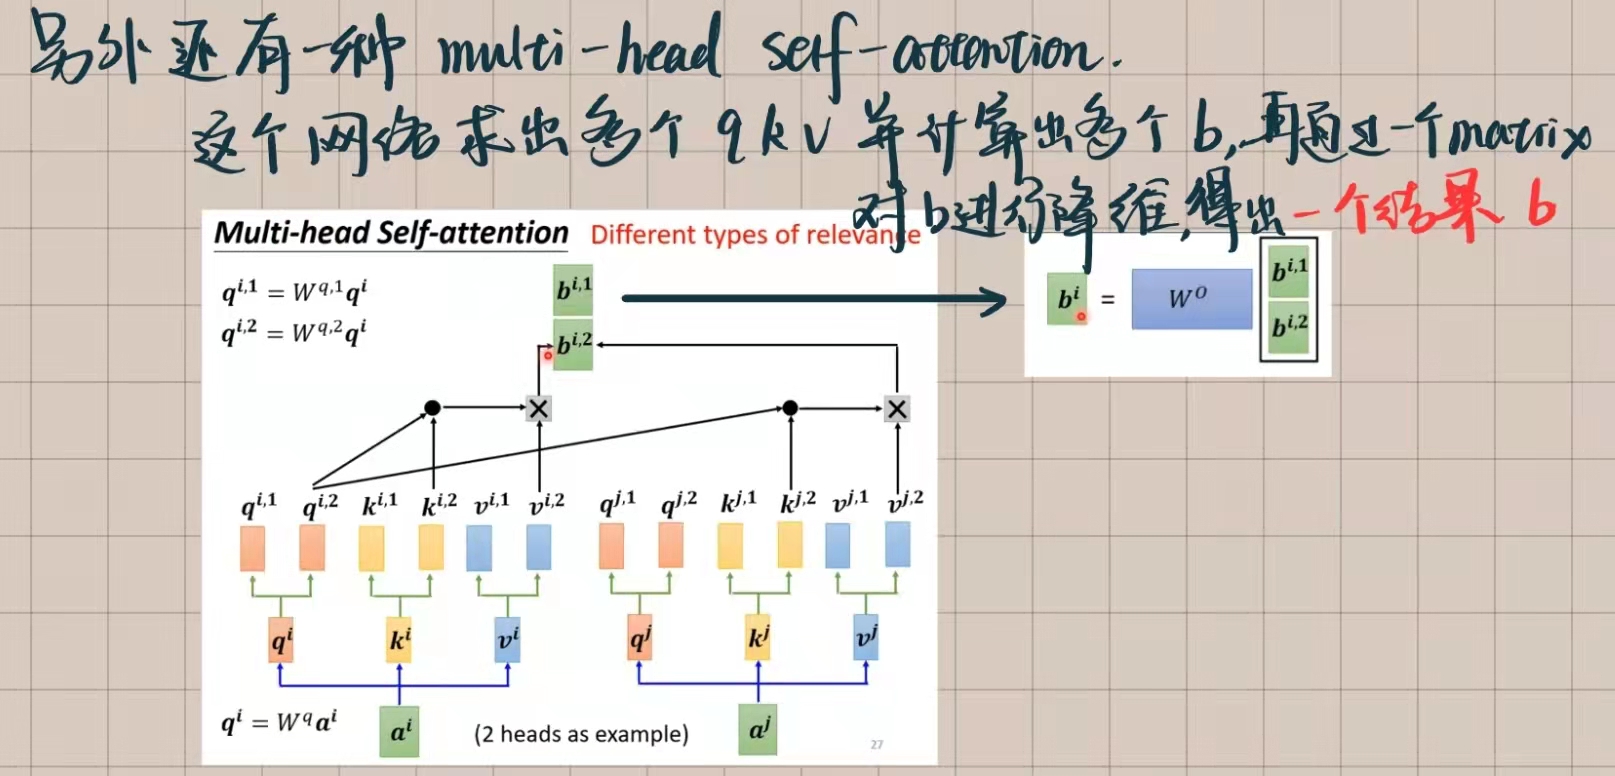 另外还有一种 multi-head self-attention.
这个网络求出多个 q k v 并计算出多个 b,再通过一个matrix
对b进行降维,得出一个结果 b
Multi-head Self-attention Different types of relevance
q^{i,1} = W^{q,1}q^i
q^{i,2} = W^{q,2}q^i
b^{i,1}
b^{i,2}
b^i = W^O b^{i,1}
b^{i,2}
q^{i,1} q^{i,2} k^{i,1} k^{i,2} v^{i,1} v^{i,2} q^{j,1} q^{j,2} k^{j,1} k^{j,2} v^{j,1} v^{j,2}
q^i k^i v^i q^j k^j v^j
q^i = W^q a^i a^i (2 heads as example) a^j
27